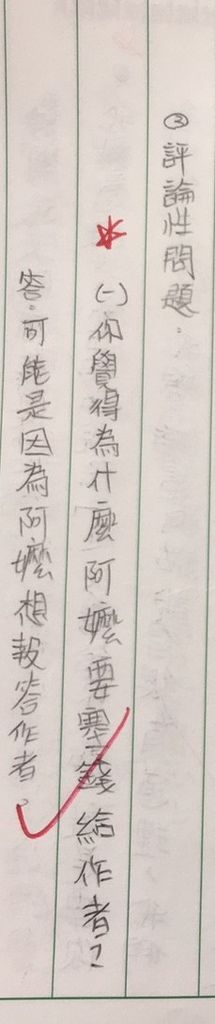 ③評論性問題：
(一)你覺得為什麼阿嬤要塞錢給作者？
答：可能是因為阿嬤想報答作者。